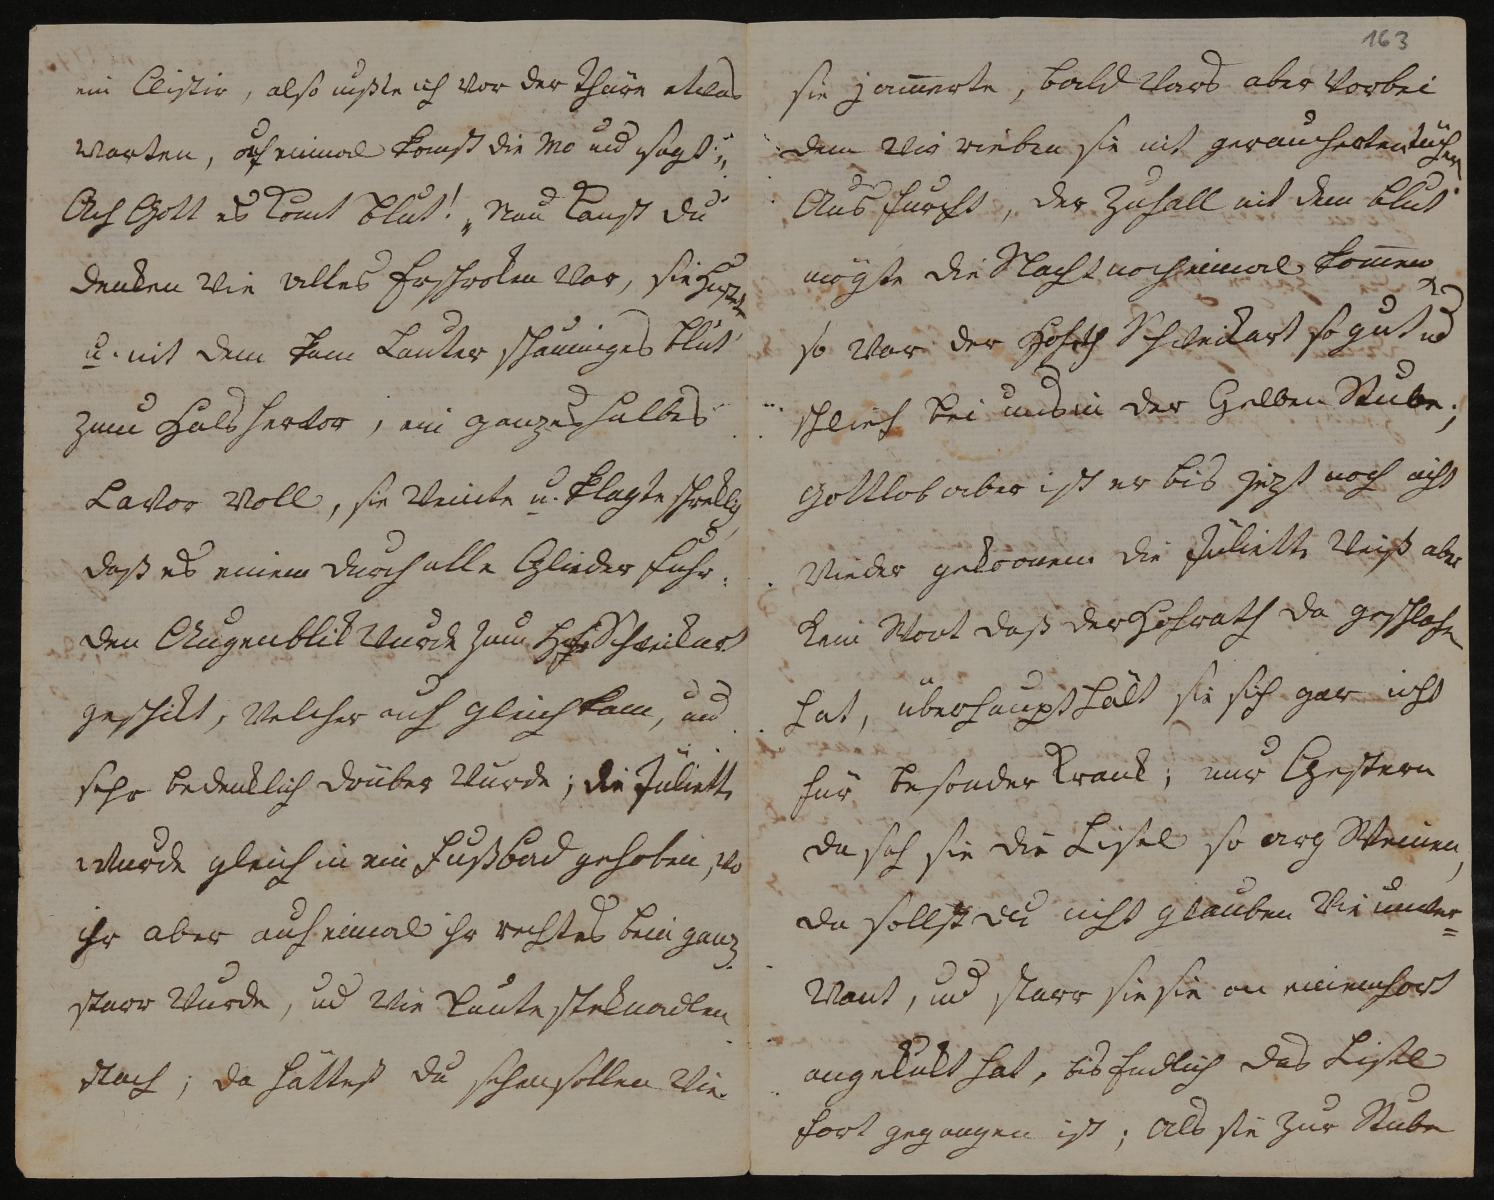 ein Clistir, also mußte ich vor der Thüre etwas
warten, auf einmal komst die Mo und sagt: „
Ach Gott es komt Blut! „ Nun kanst du
denken wie alles erschroken war, sie Hustete
u. mit dem kam lauter schaumiges Blut
zum Hals hervor, ein ganzes halbes
Lavor voll, sie weinte u. klagte schreklig,
daß es einem durch alle Glieder fuhr.
den Augenblik wurde zum Schweikart
geschikt, welcher auch gleich kam, und
sehr bedenklich drüber wurde; die Juliette
wurde gleich in ein Fußbad gehoben, wo
ihr aber auf einmal ihr rechtes bein ganz
starr wurde, und wie laute steknadlen
stach; da hättest du sehen sollen wie
163
sie jam̅erte, bald wars aber vorbei
denn wir rieben sie mit geraucherten tücher
Aus furcht, der Zufall mit dem blut
mögte die Nacht noch einmal kom̅en
so war der Hofrth Schweikart so gut und
schlief bei uns in der Gelben Stube;
Gottlob aber ist er bis jezt noch nicht
wieder gekommen. die Juliette weiß aber
kein Wort daß der Hofrath da geschlafen
hat, überhaupt hält sie sich gar nicht
für besonder krank; nur Gestern
da sah sie die Lisel so arg Weinen,
da sollst du nicht glauben wie unver=
want, und starr sie sie an einem fort
angekukt hat, bis Endlich das Lisel
fort gegangen ist; als sie zur Stube